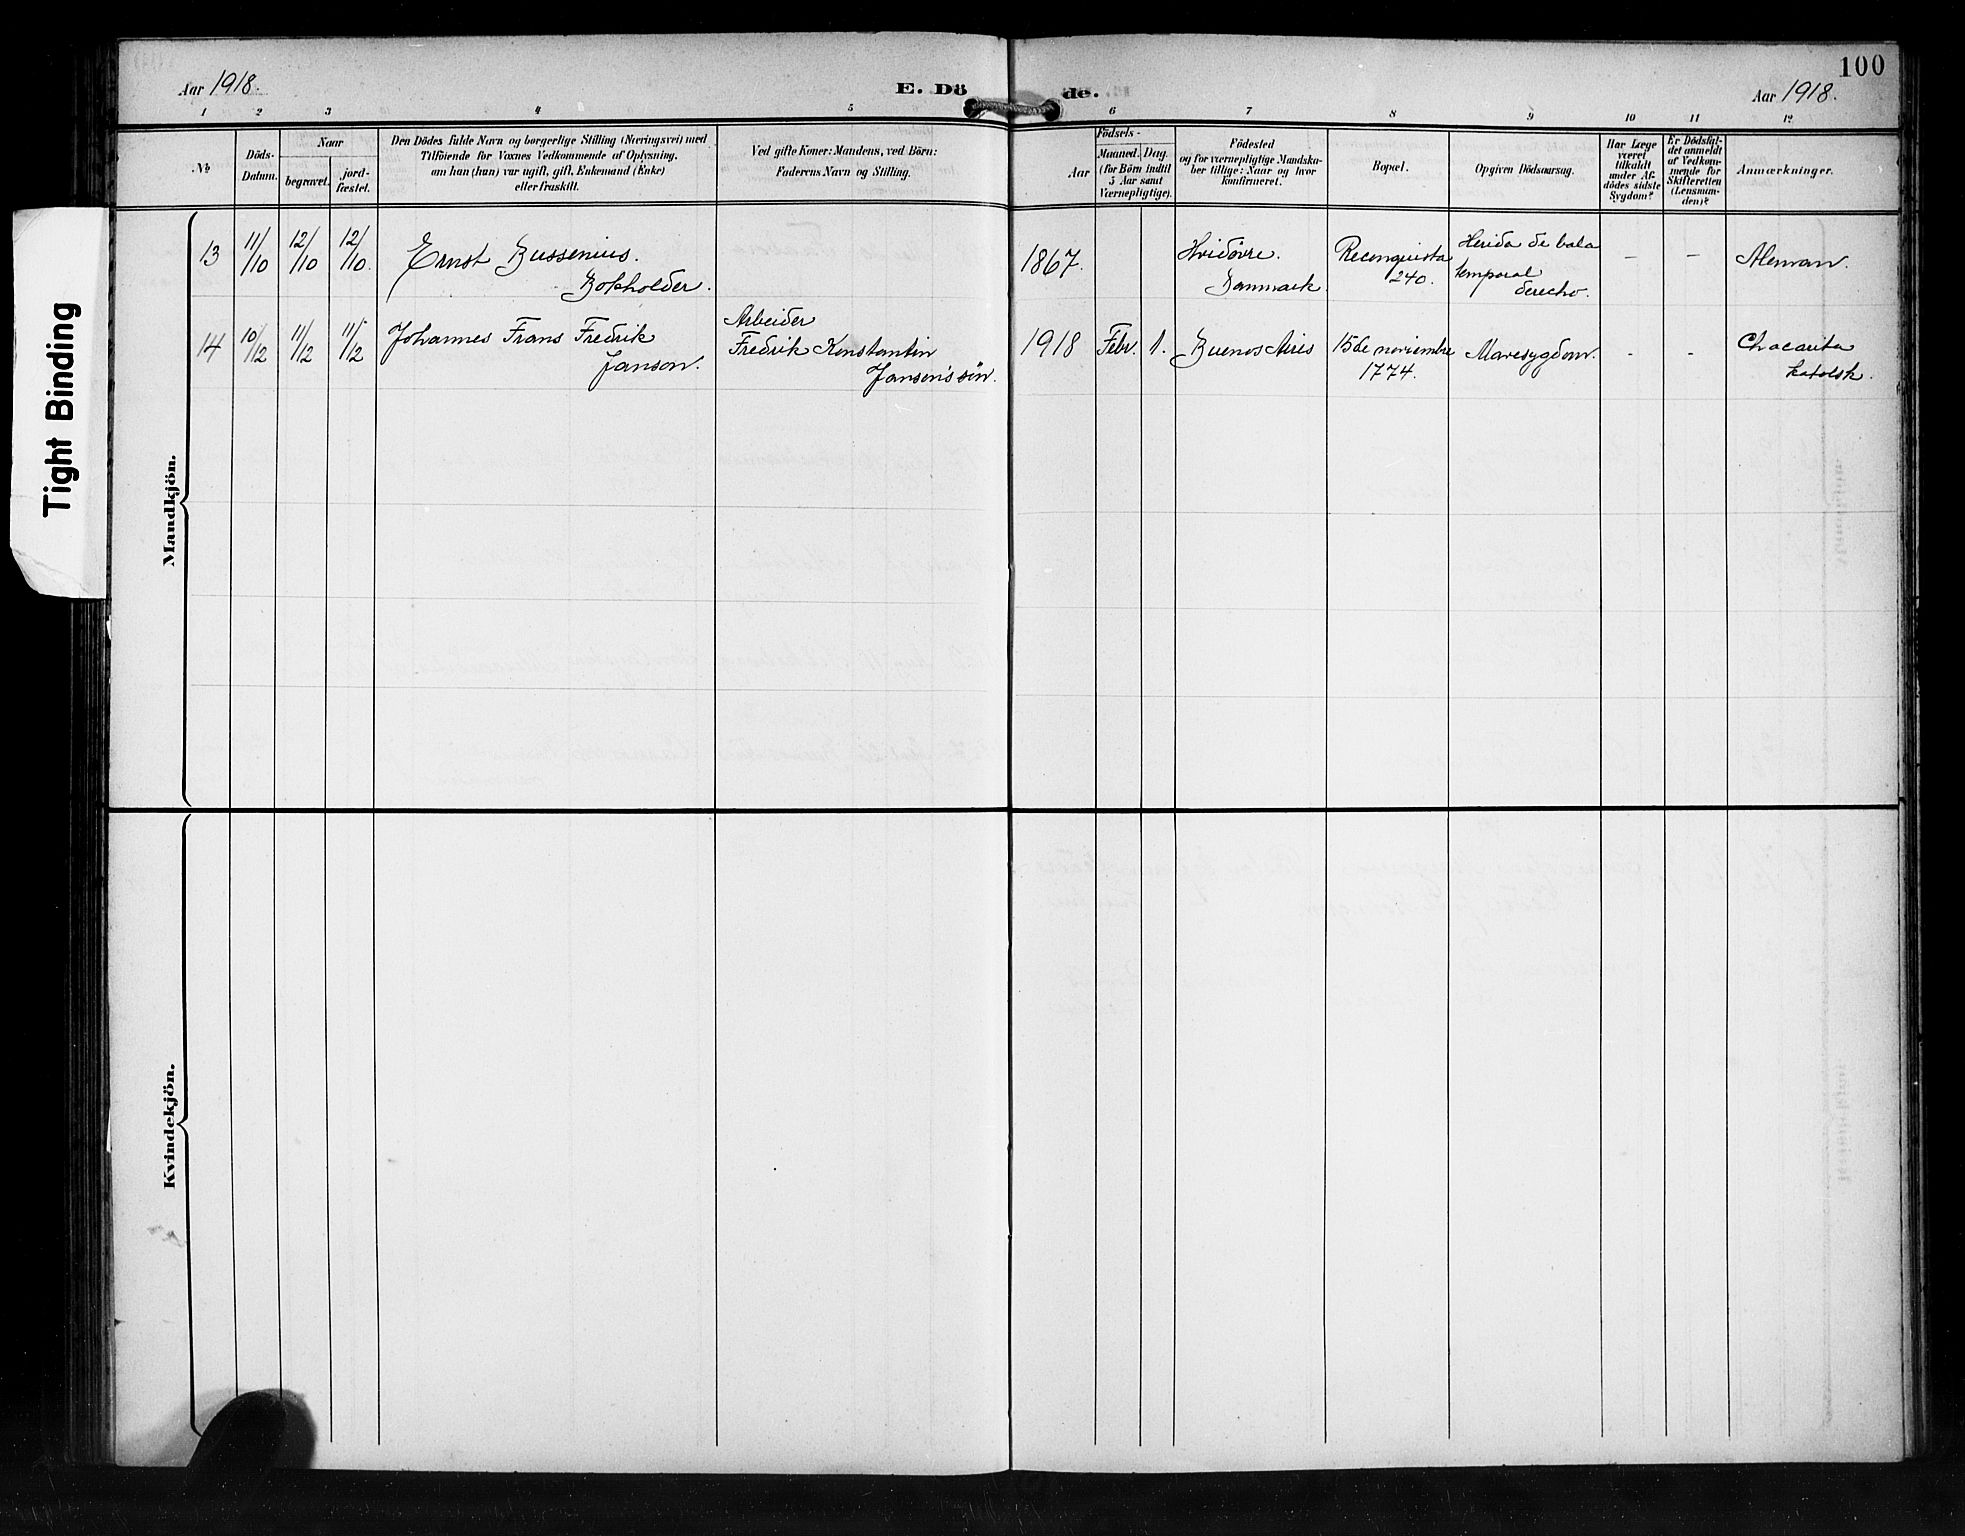 100
Aar 1918.
E. Dö
de.
Aar 1918.
1 2 3 4 5 6 7 8 9 10 11 12
No
Döds-
Datum.
Naar
begravet.
jord-
fæstet.
Den Dödes fulde Navn og borgerlige Stilling (Næringsvei) med
Tilföiende for Voxnes Vedkommende af Oplysning,
om han (hun) var ugift, gift, Enkemand (Enke)
eller fraskilt.
Ved gifte Koner: Mandens, ved Börn:
Faderens Navn og Stilling.
Födsels-
Aar
Maaned. Dag.
(for Börn indtil
5 Aar samt
Værnepligtige).
Födested
og for værnepligtige Mandska-
ber tillige: Naar og hvor
konfirmeret.
Bopæl.
Opgiven Dödsaarsag.
Har Læge
været
tilkaldt
under Af-
dödes sidste
Sygdom?
Er Dödsfal-
det anmeldt
af Vedkom-
mende for
Skifteretten
(Lensman-
den)?
Anmærkninger.
Mandkjön.
13 11/10 12/10 12/10. Ernst Bussenius.
Bokholder.
1867. Hvidövre.
Danmark.
Reconquista
240.
Herida de bala
temporal
derecho.
– – Aleman.
14 10/12 11/12 11/12 Johannes Frans Fredrik
Janson.
Arbeider
Fredrik Konstantin
Janson's sön.
1918 Febr. 1. Buenos Aires 15 de noviembre
1774.
Mavesygdom. - - Chacarita
katolsk.
Kvindekjön.
Tight Binding